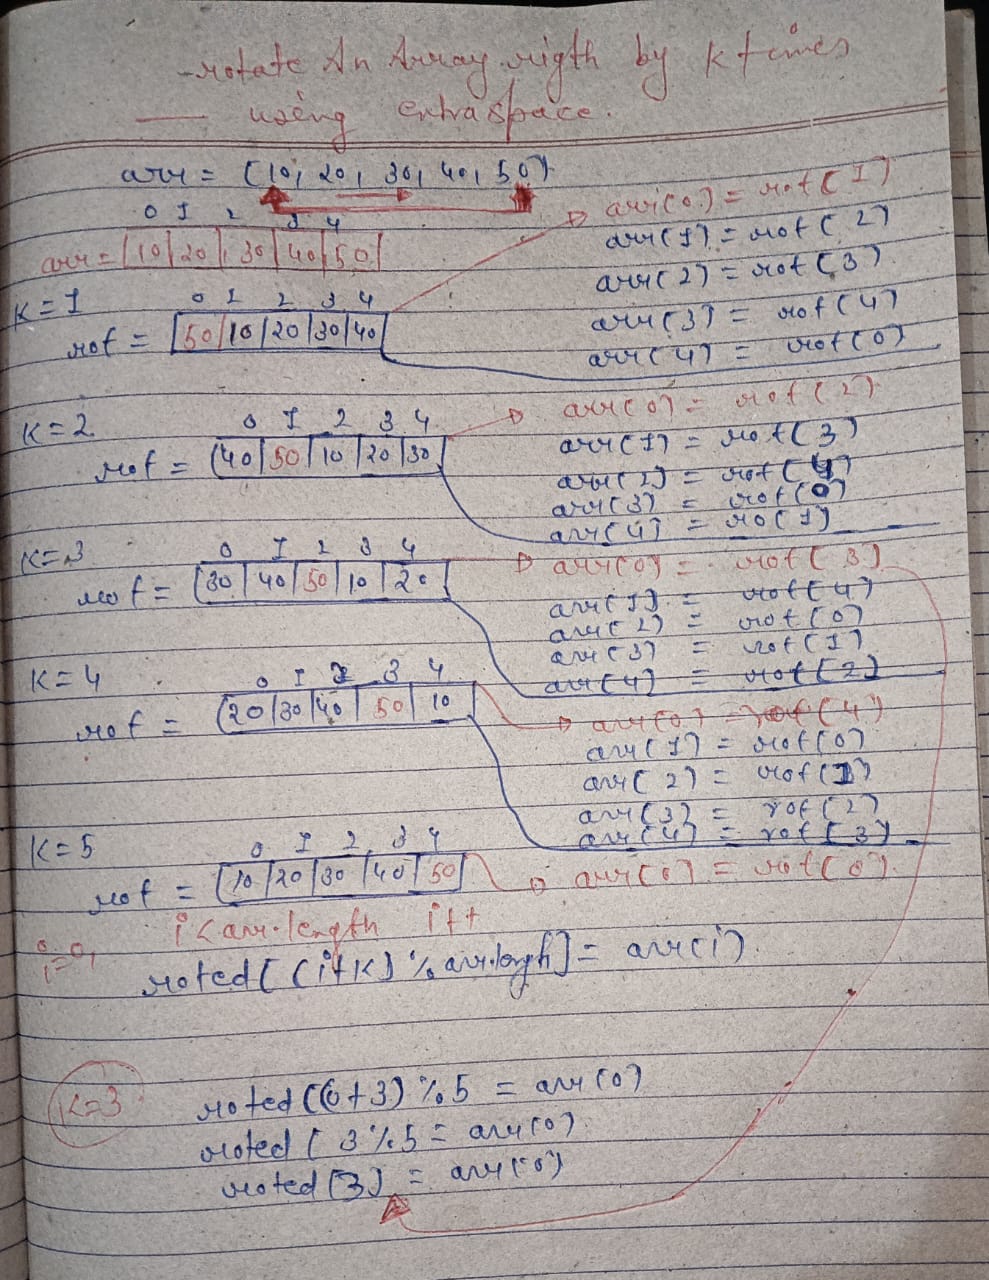 rotate An Array rigth by k times
— using extra space.
arr = (10, 20, 30, 40, 50)
0 1 2 3 4
arr = |10|20|30|40|50|
arr(0) = rot(1)
arr(1) = rot(2)
arr(2) = rot(3)
arr(3) = rot(4)
arr(4) = rot(0)
K=1 0 1 2 3 4
rot = [50|10|20|30|40]
K=2 0 1 2 3 4
rot = (40|50|10|20|30)
arr(0) = rot(2)
arr(1) = rot(3)
arr(2) = rot(4)
arr(3) = rot(0)
arr(4) = ro(1)
K=3 0 1 2 3 4
rot = [30|40|50|10|20]
arr(0) = rot(3)
arr(1) = rot(4)
arr(2) = rot(0)
arr(3) = rot(1)
arr(4) = rot(2)
K=4 0 1 2 3 4
rot = (20|30|40|50|10)
arr(0) = rot(4)
arr(1) = rot(0)
arr(2) = rot(1)
arr(3) = rot(2)
arr(4) = rot(3)
K=5 0 1 2 3 4
rot = [10|20|30|40|50]
arr(0) = rot(0).
i=0, i<arr.length i++
roted[(i+K) % arr.lengh] = arr(i)
K=3
roted((0+3) % 5 = arr(0)
roted(3 % 5 = arr(0)
roted(3) = arr(0)